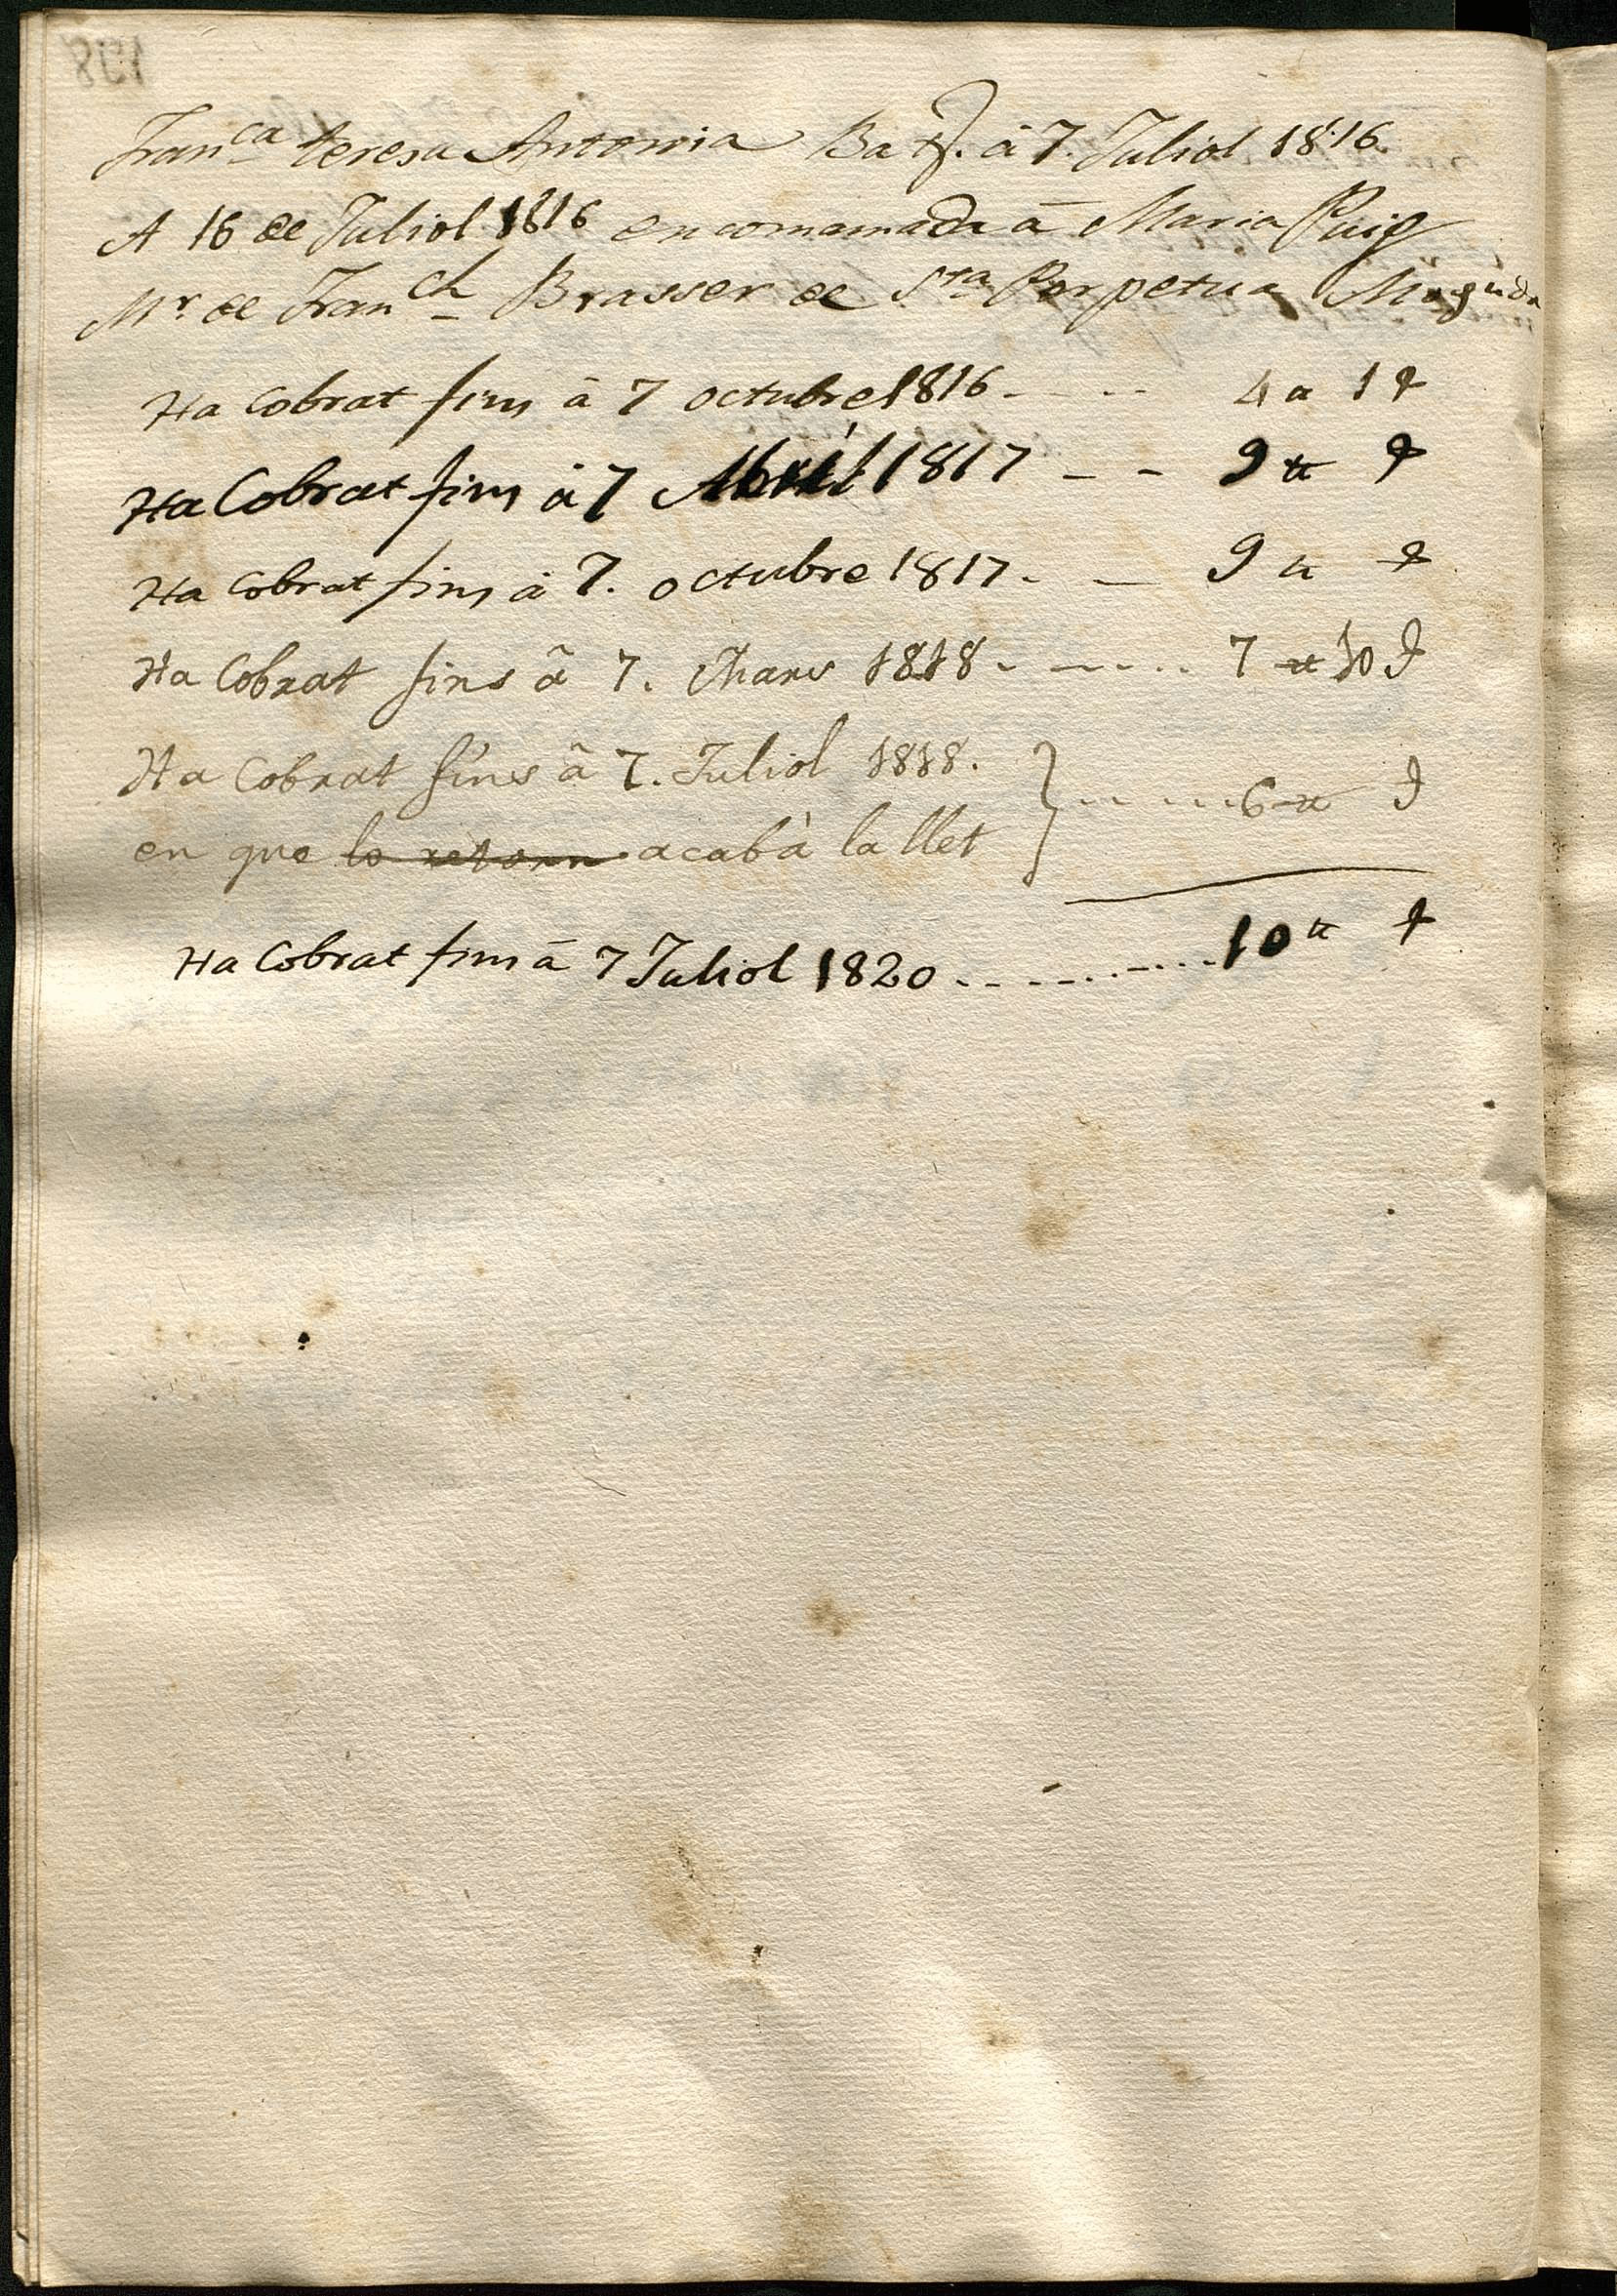 Fran^ca teresa Antonia Bat. à 7. Juliol 1816.
A 16 de Juliol 1816 encomamada à Maria Puig
M^r de Fran^ch Brasser de S^ta Perpetua Moguda
Ha Cobrat fins à 7 octubre 1816 - - - - 4 ₶ 1 ș
Ha Cobrat fins à 7 Abril 1817 - - 9 ₶ ș
Ha Cobrat fins à 7. octubre 1817. - 9 ₶ ș
Ha Cobrat fins à 7. Mars 1818 - - . . . . 7 ₶ 10 ș
Ha Cobrat fins à 7. Juliol 1818.
en que lo retorn acabà la llet } . . . . . 6 ₶ ș
Ha Cobrat fins à 7 Juliol 1820 - - - - - - - - - 10 ₶ ș